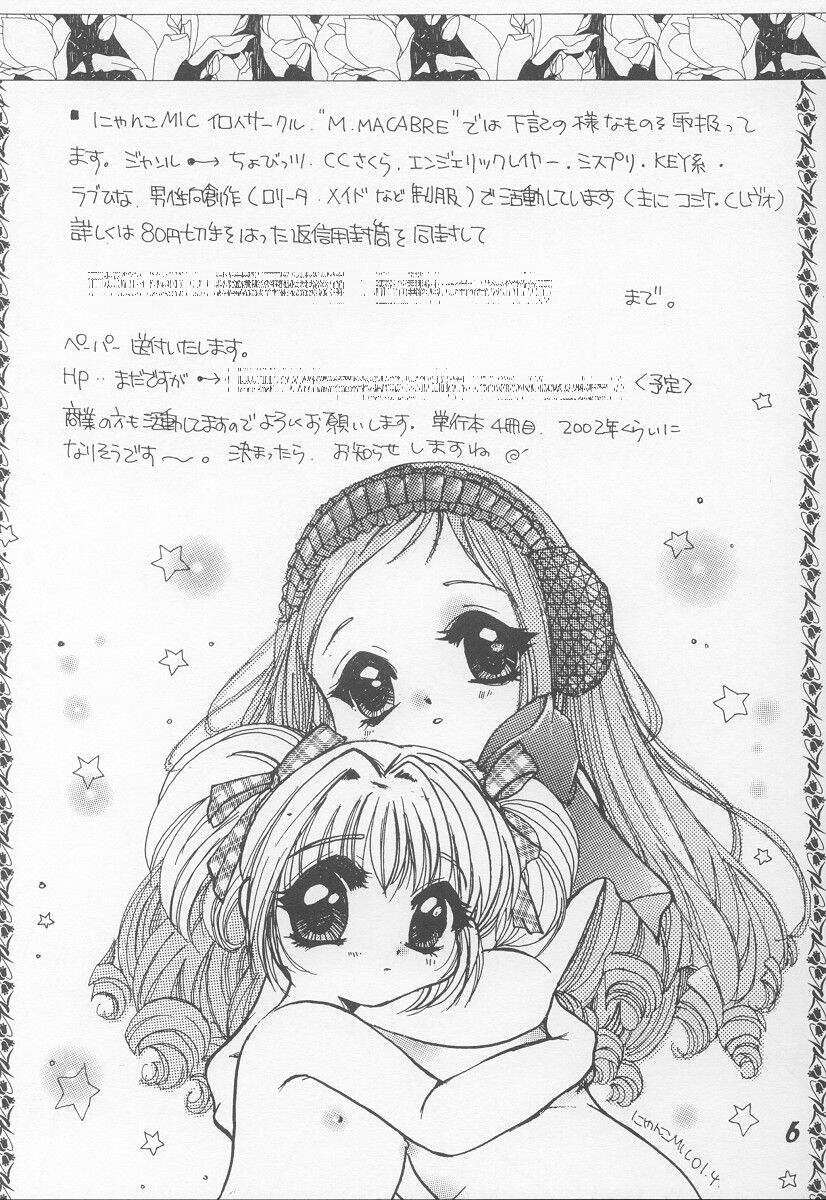 ■ にゃんこMIC 個人サークル "M.MACABRE" では 下記の様なものを取扱って
ます。ジャンル → ちょびっツ・CCさくら, エンジェリックレイヤー・ミスプリ・KEY系・
ラブひな, 男性向創作(ロリータ・メイドなど制服)で活動しています(主にコミケ・Cレヴォ)
詳しくは80円切手をはった返信用封筒を同封して
まで。
ペーパー送付いたします。
HP‥まだですが → 〈予定〉
商業の方も活動してますのでよろしくお願いします。単行本4冊目、2002年くらいに
なりそうです〜。決まったら、お知らせしますね
にゃんこMIC 01.4.
6